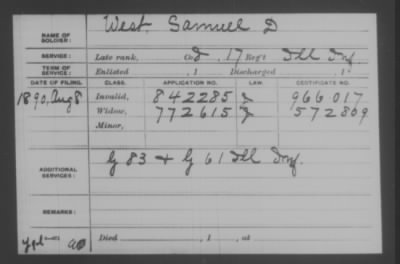 NAME OF SOLDIER: West Samuel D
SERVICE: Late rank, Co. D, 17 Reg't Ill Inf
TERM OF SERVICE: Enlisted , 1 Discharged , 1
DATE OF FILING. CLASS. APPLICATION NO. LAW. CERTIFICATE NO.
1890, Aug 8 Invalid, 842285 J 966017
Widow, 772615 J 572809
Minor,
ADDITIONAL SERVICES: G 83 & G 61 Ill Inf.
REMARKS:
Died , 1 , at